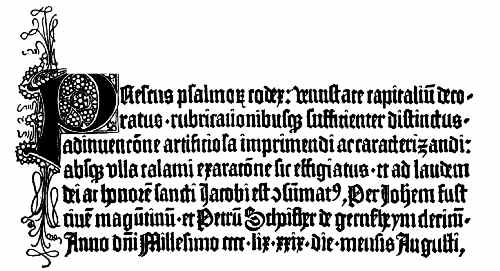 Presens psalmoꝝ codex: venustate capitaliū deco-
ratus· rubricationibusqꝫ sufficienter distinctus·
adinuencōne artificiosa imprimendi ac caracterizandi:
absqꝫ vlla calami exaracōne sic effigiatus· et ad laudem
dei ac honorē sancti Jacobi est ↄsūmatꝰ, Per Johēm fust
ciuē magūtinū· et Petrū Schoifher de gernsheym clericū·
Anno dn̄i Millesimo cccc·lix·xxix·die·mensis Augusti,